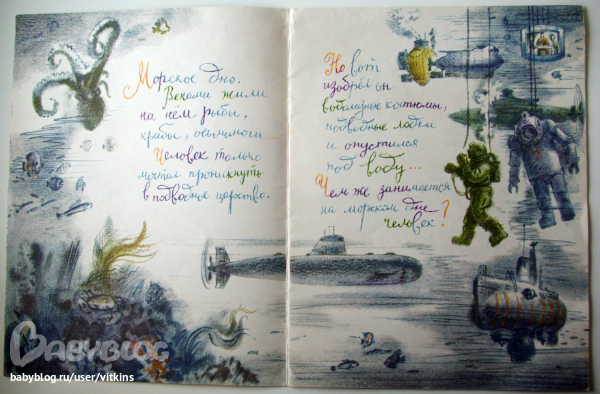 Морское дно.
Веками жили
на нём рыбы,
крабы, осьминоги...
Человек только
мечтал проникнуть
в подводное царство.
Но вот
изобрёл он
водолазные костюмы,
подводные лодки
и опустился
под воду...
Чем же занимается
на морском дне
человек?
BABYBLOG
babyblog.ru/user/vitkins